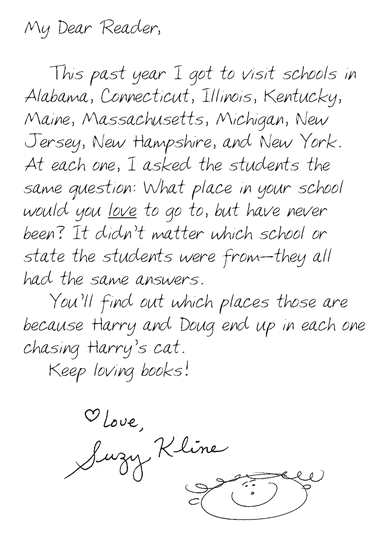 My Dear Reader,
This past year I got to visit schools in
Alabama, Connecticut, Illinois, Kentucky,
Maine, Massachusetts, Michigan, New
Jersey, New Hampshire, and New York.
At each one, I asked the students the
same question: What place in your school
would you love to go to, but have never
been? It didn't matter which school or
state the students were from—they all
had the same answers.
You'll find out which places those are
because Harry and Doug end up in each one
chasing Harry's cat.
Keep loving books!
♡ Love,
Suzy Kline